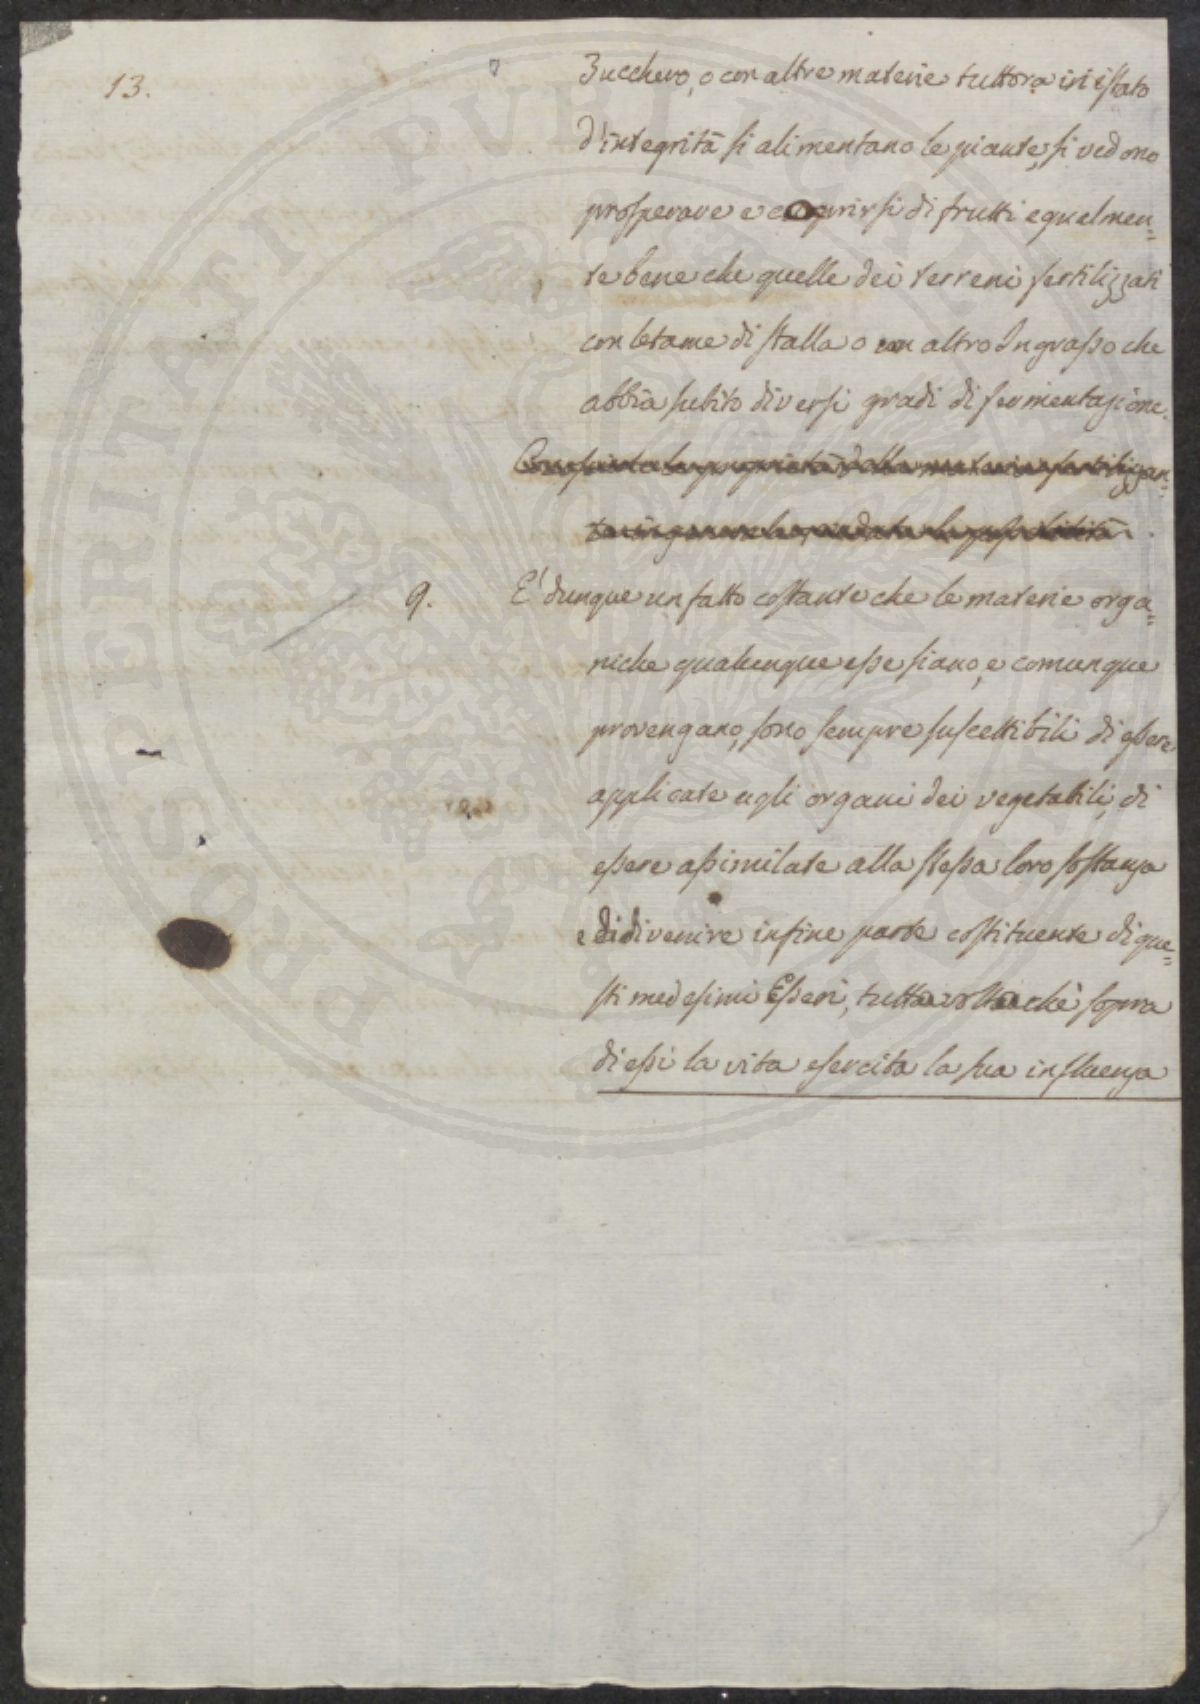 13.
Zucchero, o con altre materie tuttora in istato
d'integrità si alimentano le piante, si vedono
prosperare e coprirsi di frutti egualmen=
te bene che quelle dei terreni fertilizzati
con letame di stalla o con altro Ingrasso che
abbia subito diversi gradi di fermentazione.
9. E' dunque un fatto costante che le materie orga=
niche qualunque esse siano, e comunque
provengano, sono sempre suscettibili di essere
applicate agli organi dei vegetabili, di
essere assimilate alla stessa loro sostanza
e di divenire infine parte costituente di que=
sti medesimi Esseri, tutta volta chè sopra
di essi la vita esercita la sua influenza
PROSPERITATI PUBLICAE